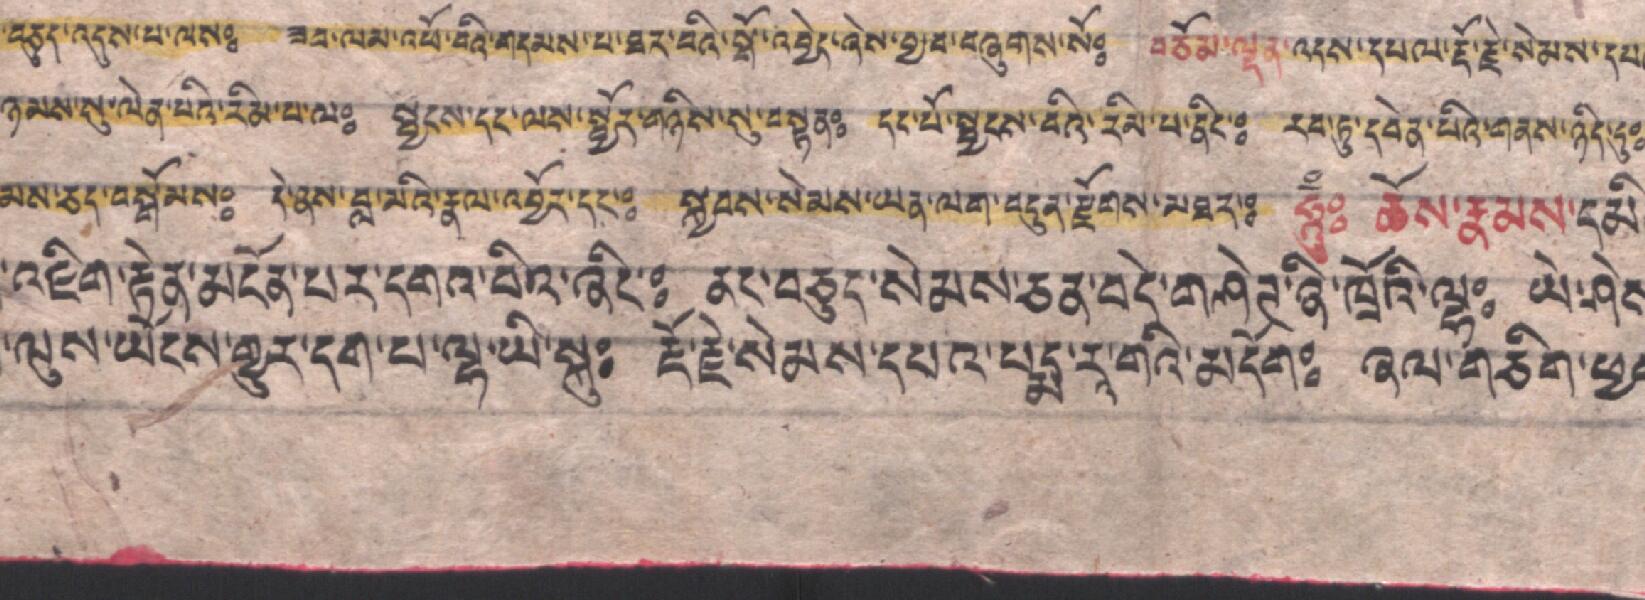 བཅུད་འདུས་པ་ལས༔ ཟབ་ལམ་འཕོ་བའི་གདམས་པ་ཐར་བའི་སྒོ་འབྱེད་ཞེས་བྱ་བ་བཞུགས་སོ༔ བཅོམ་ལྡན་འདས་དཔལ་རྡོ་རྗེ་སེམས་དཔ
ཉམས་སུ་ལེན་པའི་རིམ་པ་ལ༔ སྦྱངས་དང་ལས་སྦྱོར་གཉིས་སུ་བསྟན༔ དང་པོ་སྦྱངས་བའི་རིམ་པ་ནི༔ རབ་ཏུ་དབེན་པའི་གནས་ཉིད་དུ༔
མས་ཅད་བསྒོམས༔ དེ་ནས་བླ་མའི་རྣལ་འབྱོར་དང༔ སྐྱབས་སེམས་ཡན་ལག་བདུན་རྫོགས་མཐར༔ ཧཱུྃ༔ ཆོས་རྣམས་དམི
འཇིག་རྟེན་མངོན་པར་དགའ་བའི་ཞིང༔ ནང་བཅུད་སེམས་ཅན་བདེ་གཤེན་ཉི་ཁྲོའི་ལྷ༔ ཡེ་ཤེས
ལུས་ཡོངས་གྱུར་དག་པ་ལྷ་ཡི་སྐུ༔ རྡོ་རྗེ་སེམས་དཔའ་པདྨ་རཱ་གའི་མདོག༔ ཞལ་གཅིག་ཕྱག